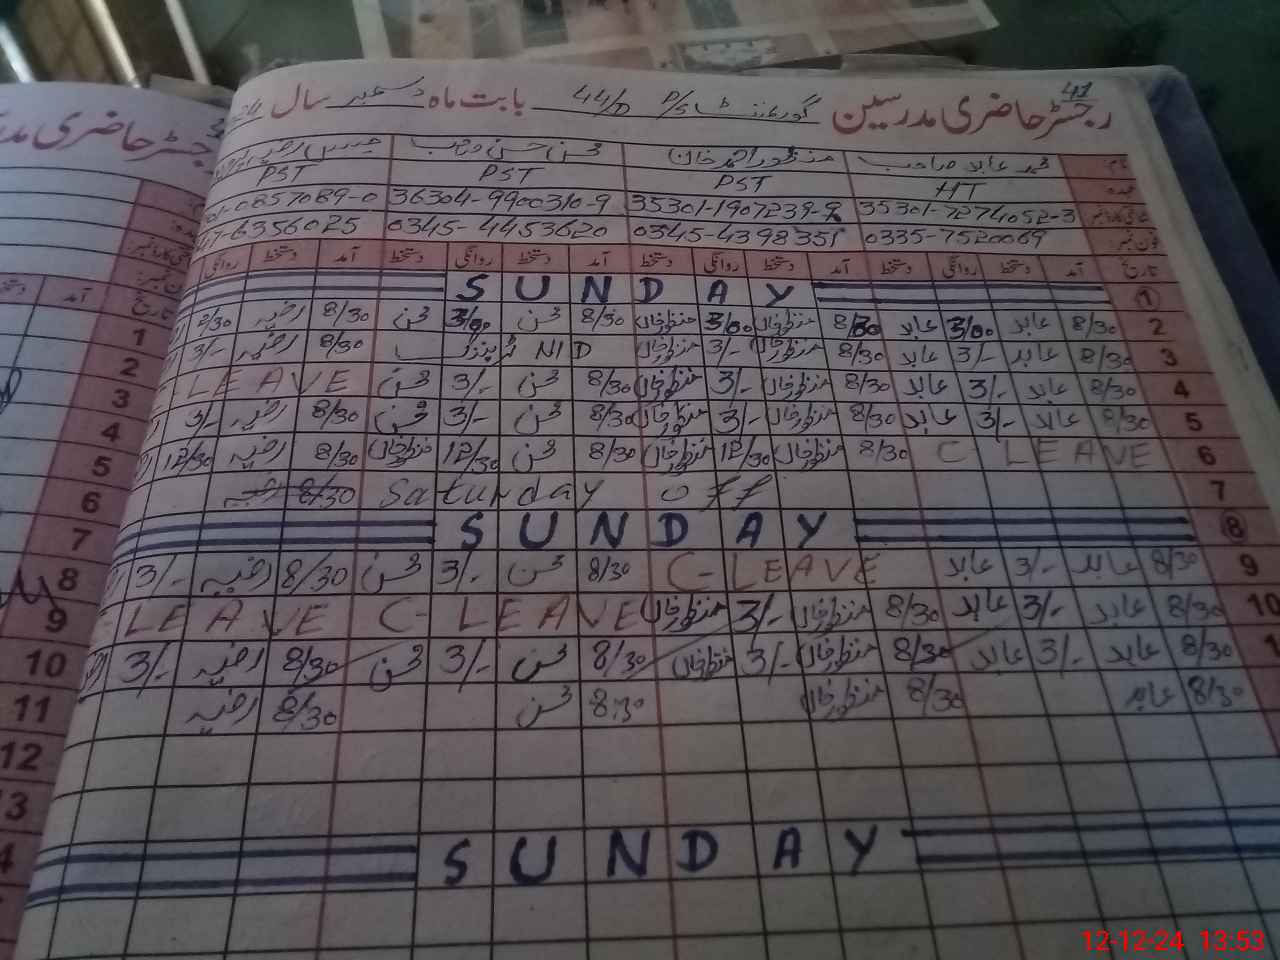 41
رجسٹر حاضری مدرسین گورنمنٹ P/S 44/D بابت ماہ دسمبر سال 24
نام محمد عابد صاحب منظور احمد خان محسن حسن
عہدہ HT PST PST PST
35301-7274052-3 35301-1907239-9 36304-9900310-9 0857089-0
فون نمبر: 0335-7520069 0345-4398351 0345-4453620 6356025
تاریخ آمد دستخط روانگی دستخط آمد دستخط روانگی دستخط آمد دستخط روانگی دستخط آمد دستخط روانگی
1 SUNDAY
2 8/30 عابد 3/00 عابد 8/30 منظور خان 3/00 منظور خان 8/30 محسن 3/00 محسن 8/30
3 8/30 عابد 3/- عابد 8/30 منظور خان 3/- منظور خان NID 8/30 3/-
4 8/30 عابد 3/- عابد 8/30 منظور خان 3/- منظور خان 8/30 محسن 3/- محسن LEAVE
5 8/30 عابد 3/- عابد 8/30 منظور خان 3/- منظور خان 8/30 محسن 3/- محسن 8/30 3/-
6 C LEAVE 8/30 منظور خان 12/30 منظور خان 8/30 محسن 12/30 8/30 12/30
7 Saturday off 8/30
8 SUNDAY
9 8/30 عابد 3/- عابد C-LEAVE 8/30 محسن 3/- محسن 8/30 3/-
10 8/30 عابد 3/- عابد 8/30 منظور خان 3/- منظور خان C-LEAVE LEAVE
8/30 عابد 3/- عابد 8/30 منظور خان 3/- منظور خان 8/30 محسن 3/- محسن 8/30 3/-
8/30 عابد 8/30 منظور خان 8:30 محسن 8/30
SUNDAY
رجسٹر حاضری
آمد
تاریخ
1
2
3
4
5
6
7
8
9
10
11
12
12-12-24 13:53